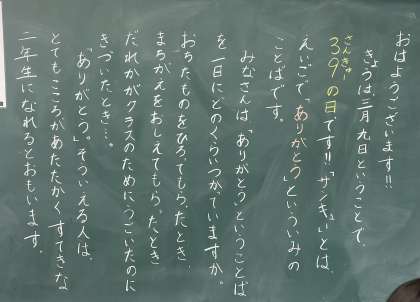 おはようございます!!
きょうは三月九日ということで、
さんきゅー
39の日です!!「サンキュー」とは、
えいごで、「ありがとう」といういみの
ことばです。
みなさんは、「ありがとう」ということば
を一日にどのくらいつかっていますか。
おちたものをひろってもらったとき、
まちがえをおしえてもらったとき
だれかがクラスのためにうごいたのに
きづいたとき…。
「ありがとう」。そういえる人は、
とてもこころがあたたかくすてきな
二年生になれるとおもいます。